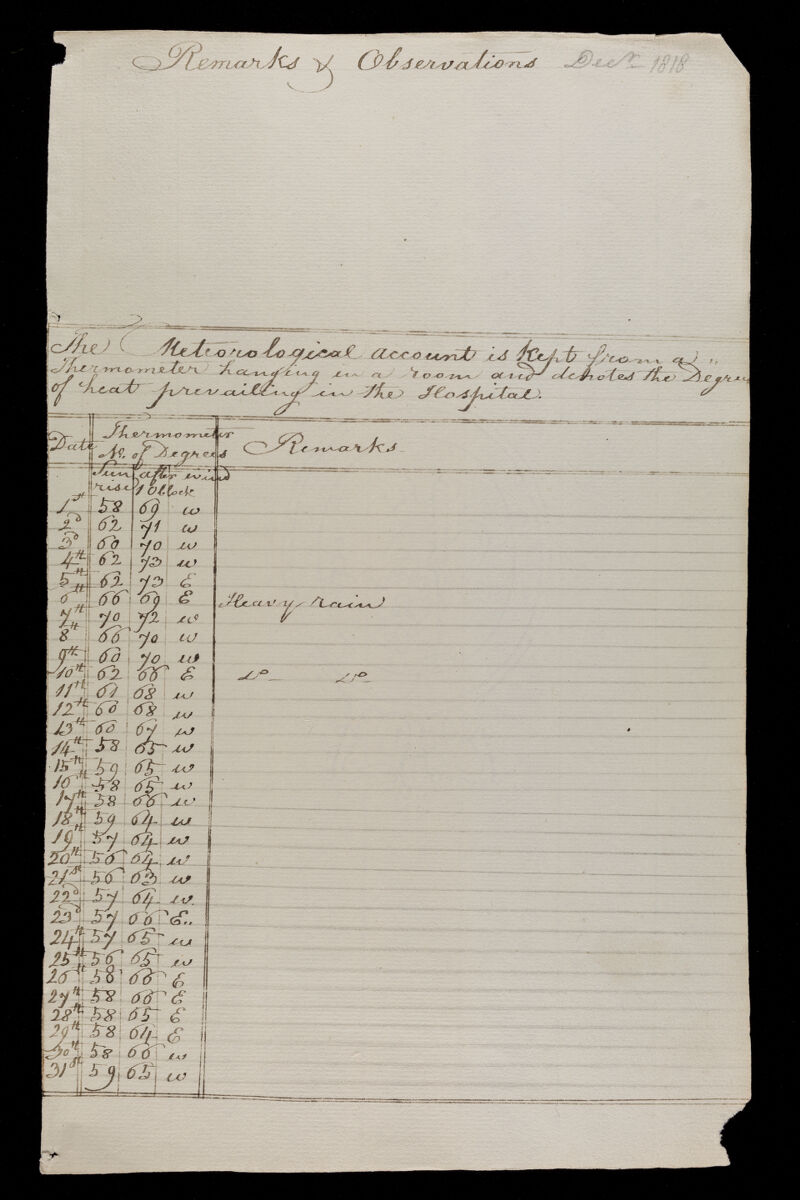 Remarks & Observations Decr. 1818
The Meteorological account is Kept from a
Thermometer hanging in a room and denotes the Degrees
of heat prevailing in the Hospital.
Date Thermometer No. of Degrees Remarks
Sun rise after 1 oClock wind
1st 58 69 w
2d 62 71 w
3d 60 70 w
4th 62 73 w
5th 62 73 E
6th 66 69 E Heavy rain
7th 70 72 w
8th 66 70 w
9th 60 70 w
10th 62 66 E Do Do
11th 61 68 w
12th 60 68 w
13th 60 67 w
14th 58 65 w
15th 59 65 w
16th 58 65 w
17th 58 66 w
18th 59 64 w
19th 57 64 w
20th 56 64 w
21st 56 63 w
22d 57 64 w
23d 57 66 E
24th 57 65 w
25th 56 65 w
26th 58 66 E
27th 58 66 E
28th 58 65 E
29th 58 64 E
30th 58 66 w
31st 59 65 w